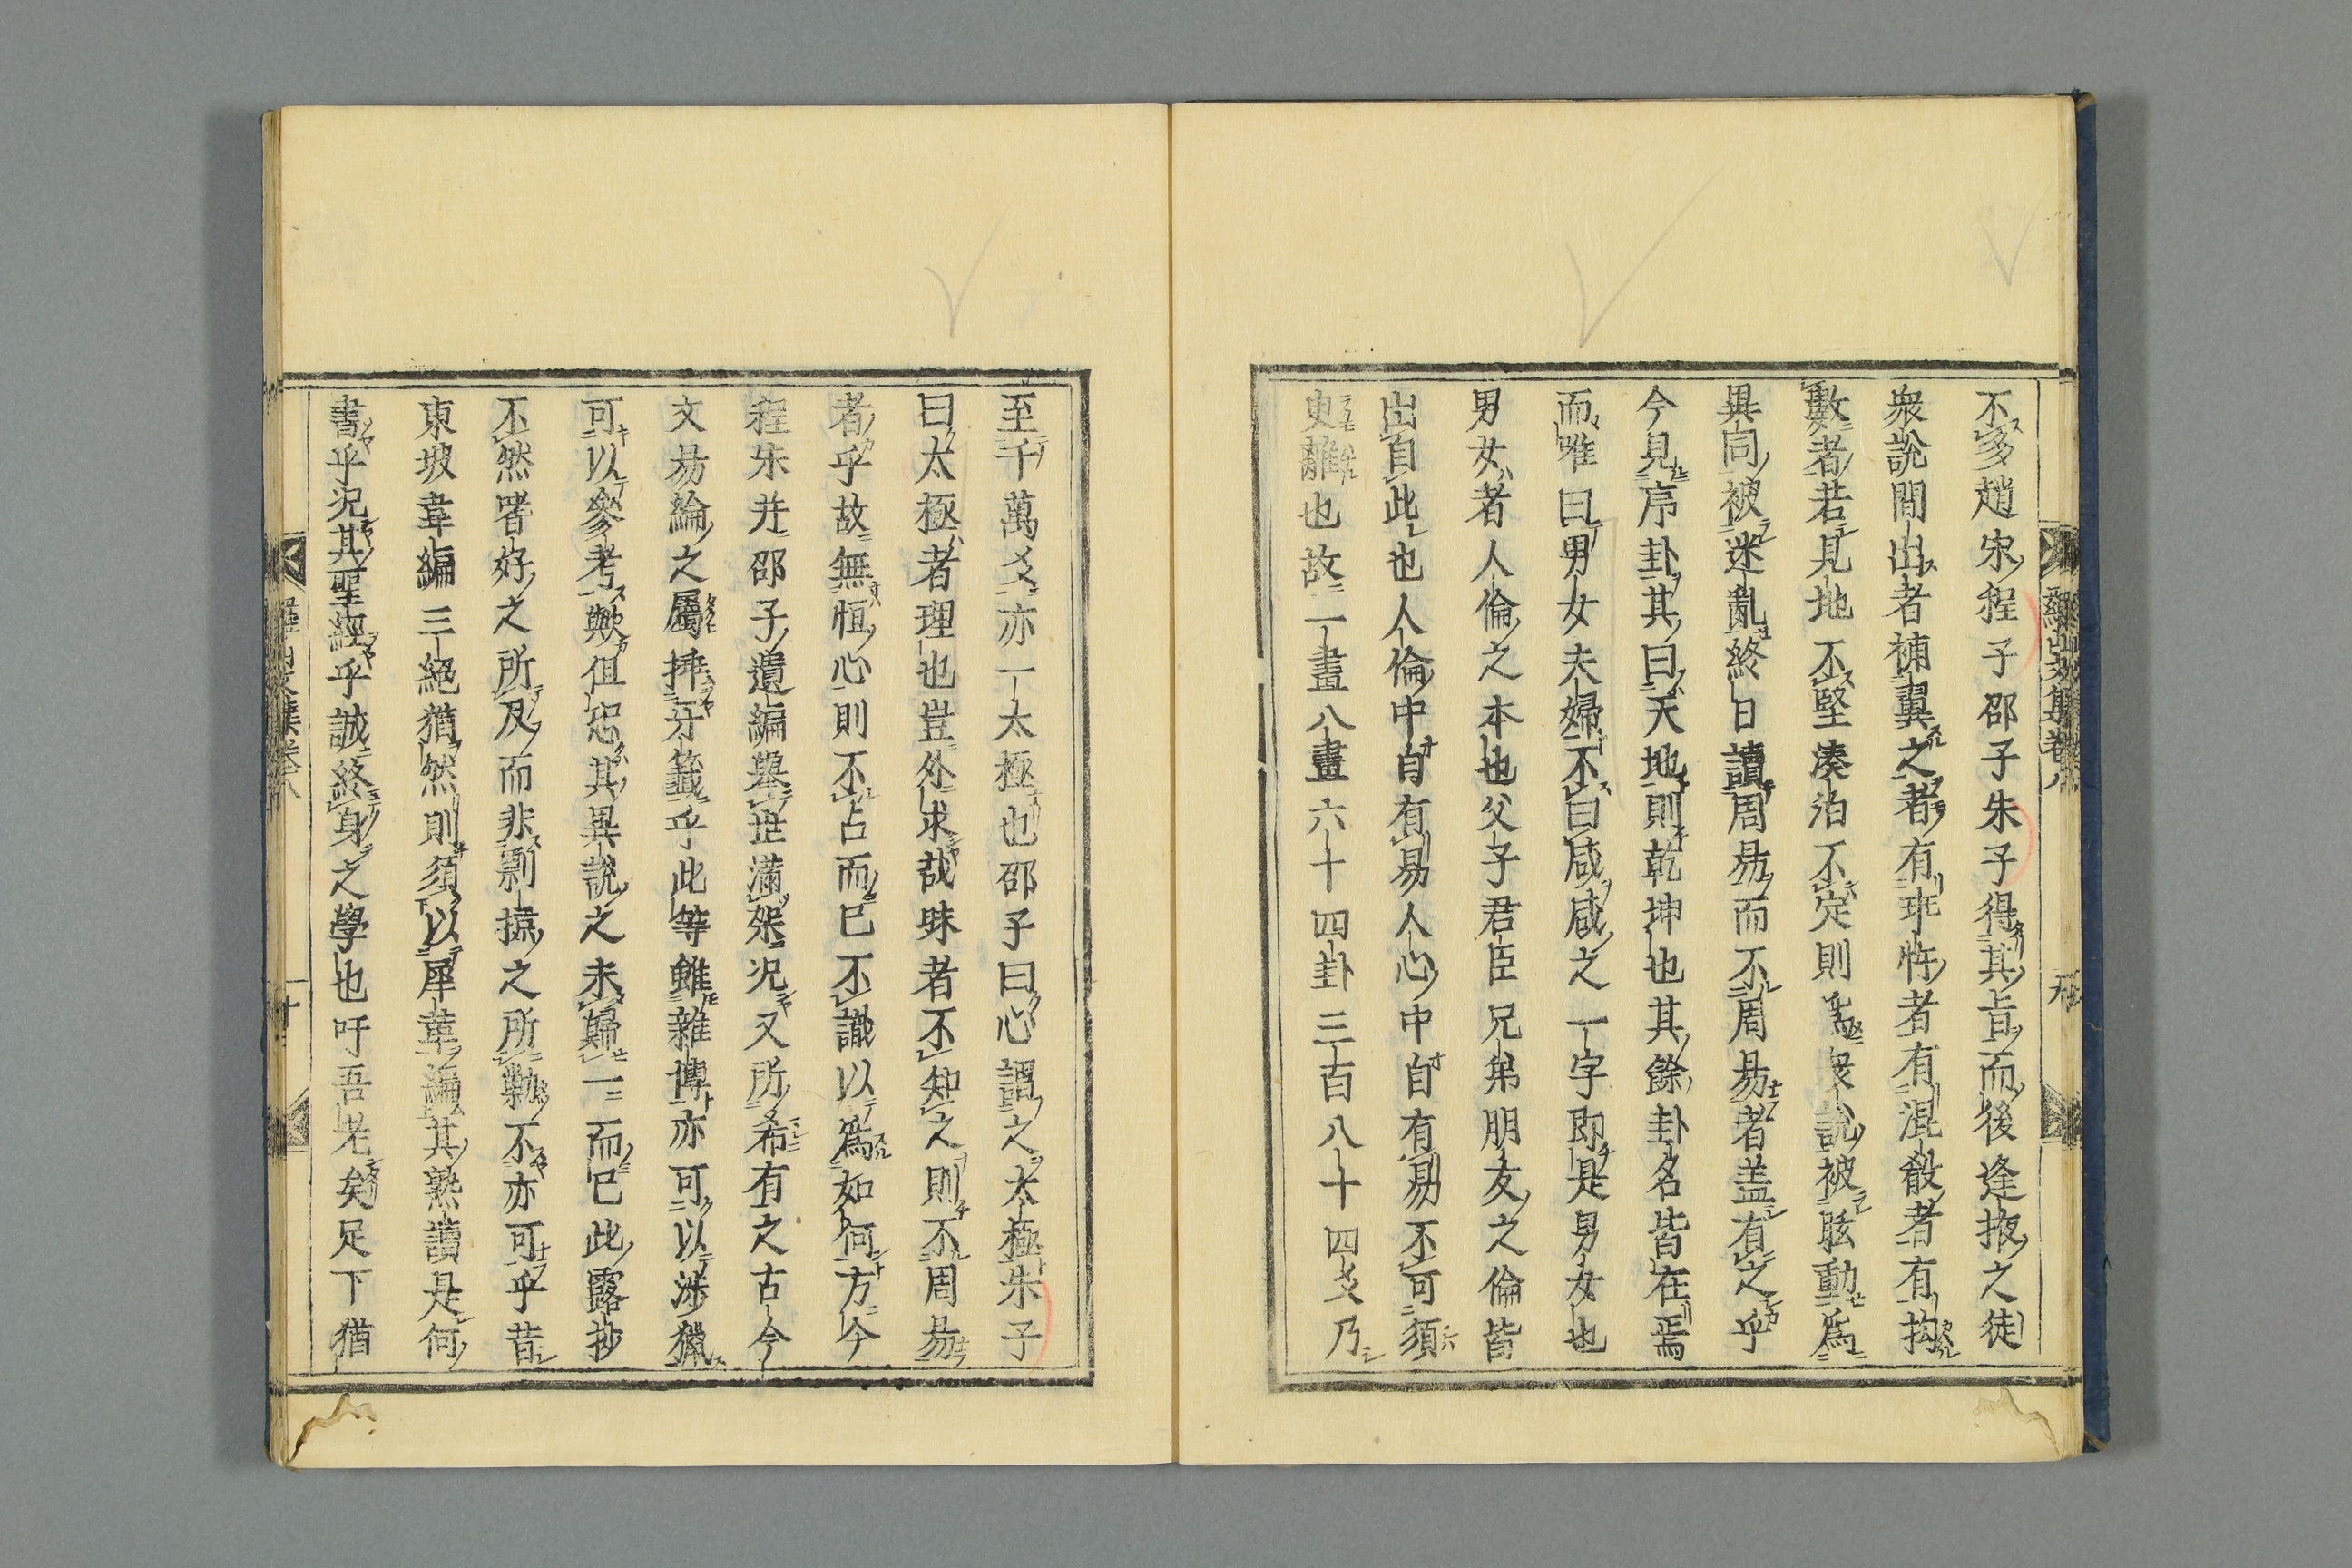 羅山文集卷八
九
不多趙宋程子邵子朱子得其旨而後逢掖之徒
衆說間出者補翼之者有班牾者有混殽者有拘
數者若見地不堅湊泊不定則爲衆說被眩動爲
異同被迷亂終日讀周易而不周易者盖有之乎
今見序卦其曰天地則乾坤也其餘卦名皆在焉
而唯曰男女夫婦不曰咸咸之一字即是男女也
男女者人倫之本也父子君臣兄弟朋友之倫皆
出自此也人倫中自有易人心中自有易不可須
臾離也故一畫八畫六十四卦三百八十四爻乃
至千萬爻亦一太極也邵子曰心謂之太極朱子
曰太極者理也豈外求哉昧者不知之則不周易
者乎故無恒心則不占而已不識以爲如何方今
程朱并邵子遺編舉世滿架况又所希有之古今
文易論之屬挿牙籤乎此等雖雜博亦可以渉獵
可以參考歟但恐其異說之未歸一而已此露抄
不然嗜好之所及而非剽摭之所勦不亦可乎昔
東坡韋編三絕猶然則須以犀革編其熟讀是何
書乎况其聖經乎誠終身之學也吁吾老矣足下猶
羅山文集卷八
十